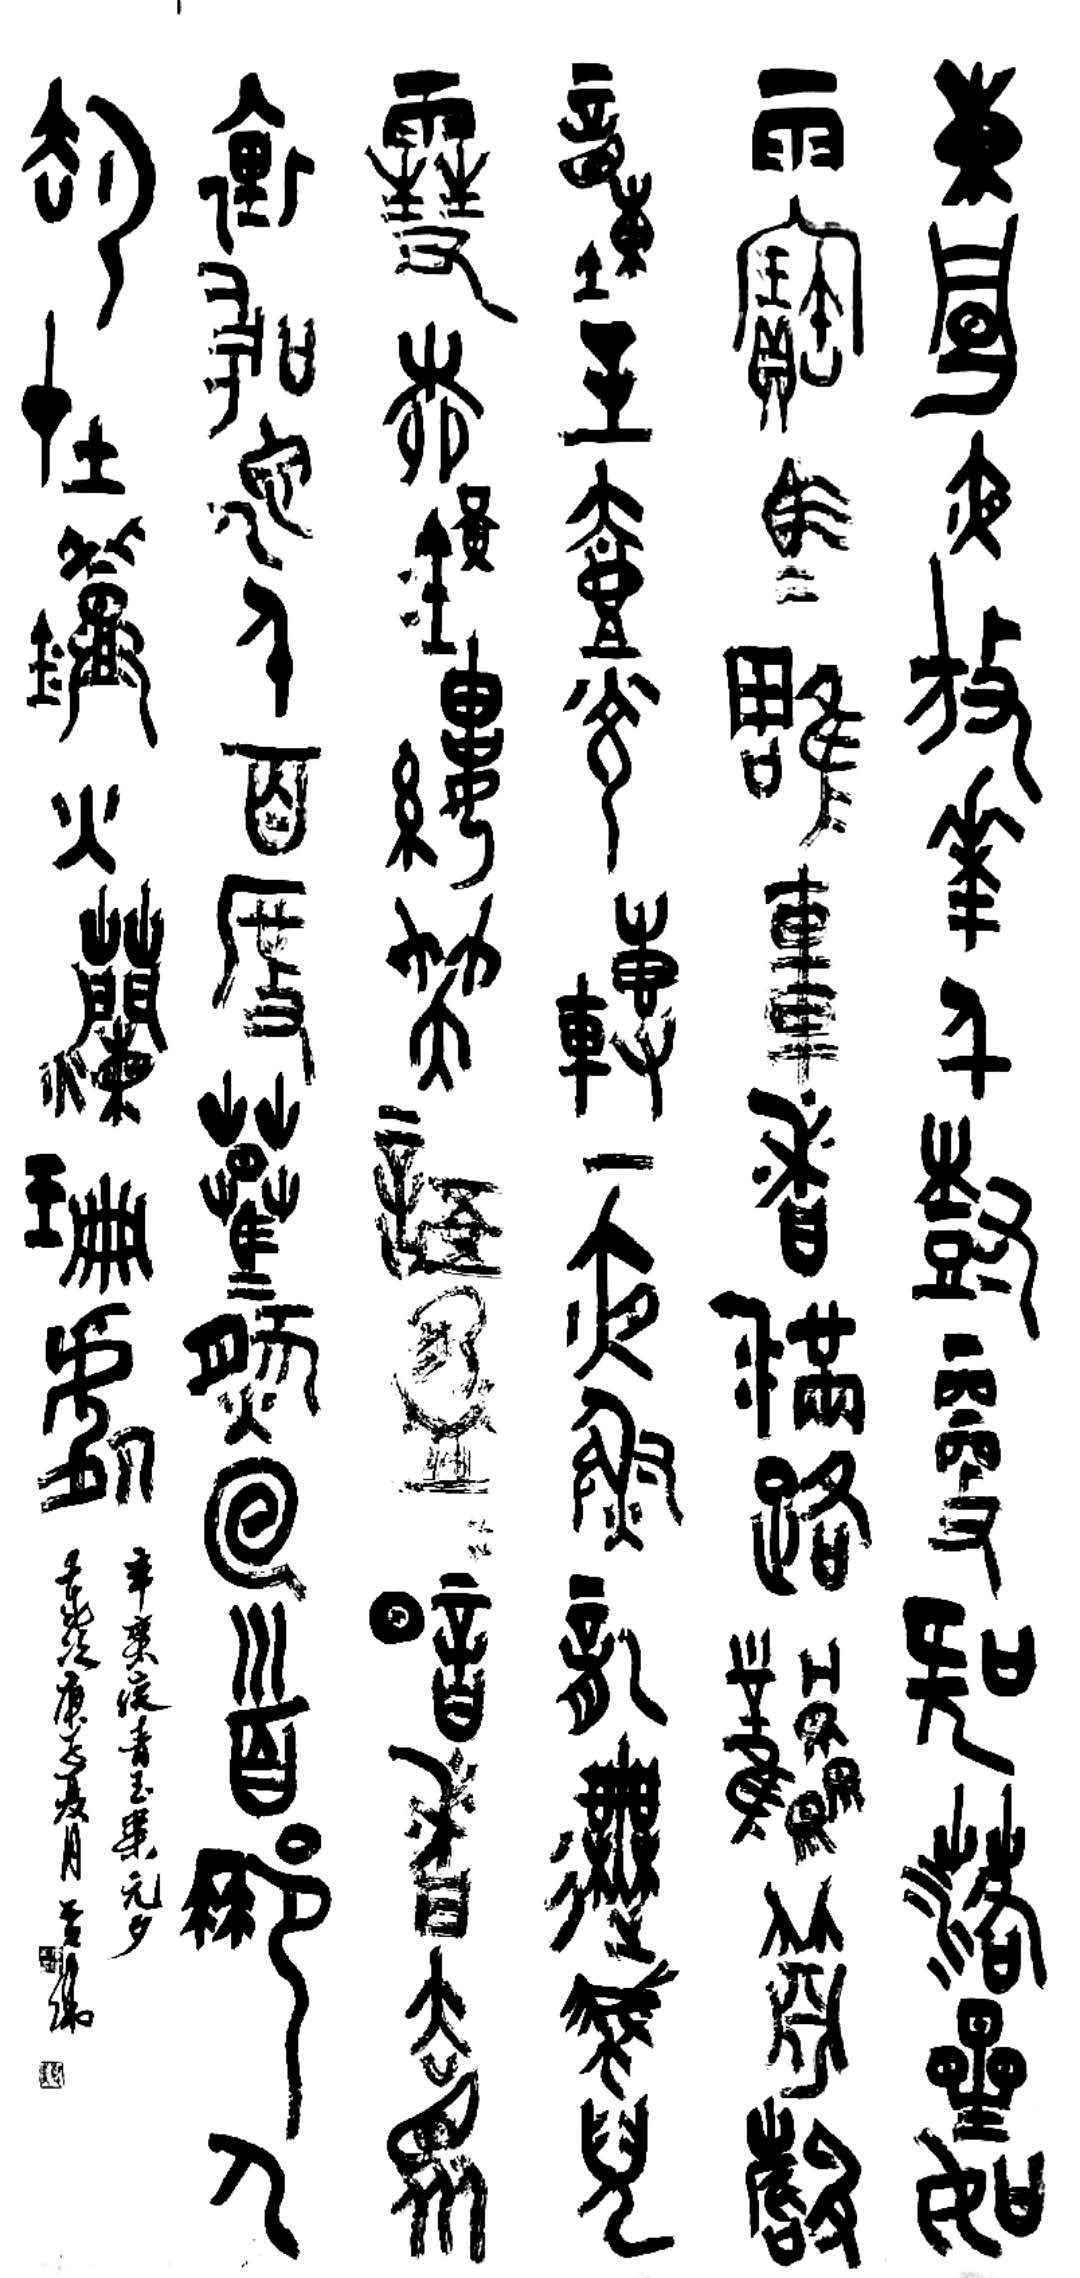 東風夜放華千樹更吹落星如
雨寶馬雕車香滿路鳳簫聲
動玉壺光轉一夜魚龍舞蛾兒
雪柳黃金縷笑語盈盈暗香去眾
裏尋他千百度驀然回首那人
却在燈火闌珊處
辛棄疾青玉案元夕
庚子夏月